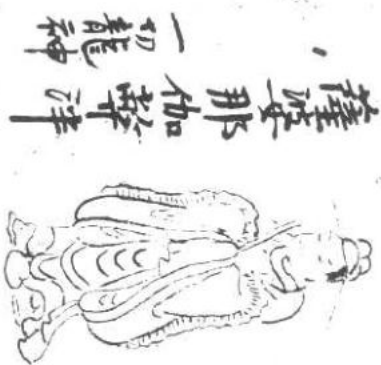 薩婆那伽
一切龍神